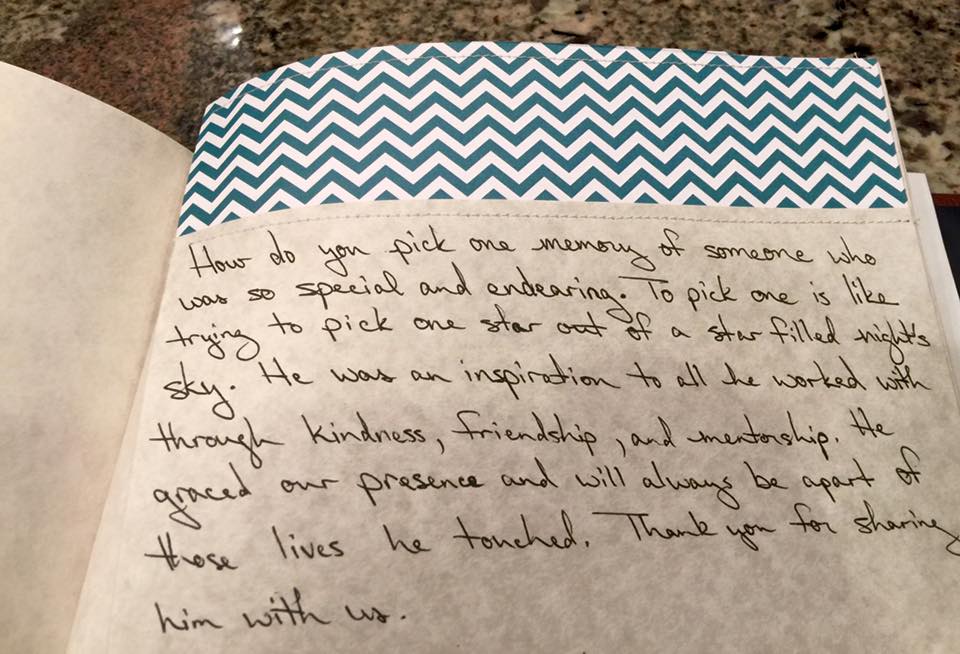 How do you pick one memory of someone who
was so special and endearing. To pick one is like
trying to pick one star out of a star filled night's
sky. He was an inspiration to all he worked with
through kindness, friendship, and mentorship. He
graced our presence and will always be apart of
those lives he touched. Thank you for sharing
him with us.